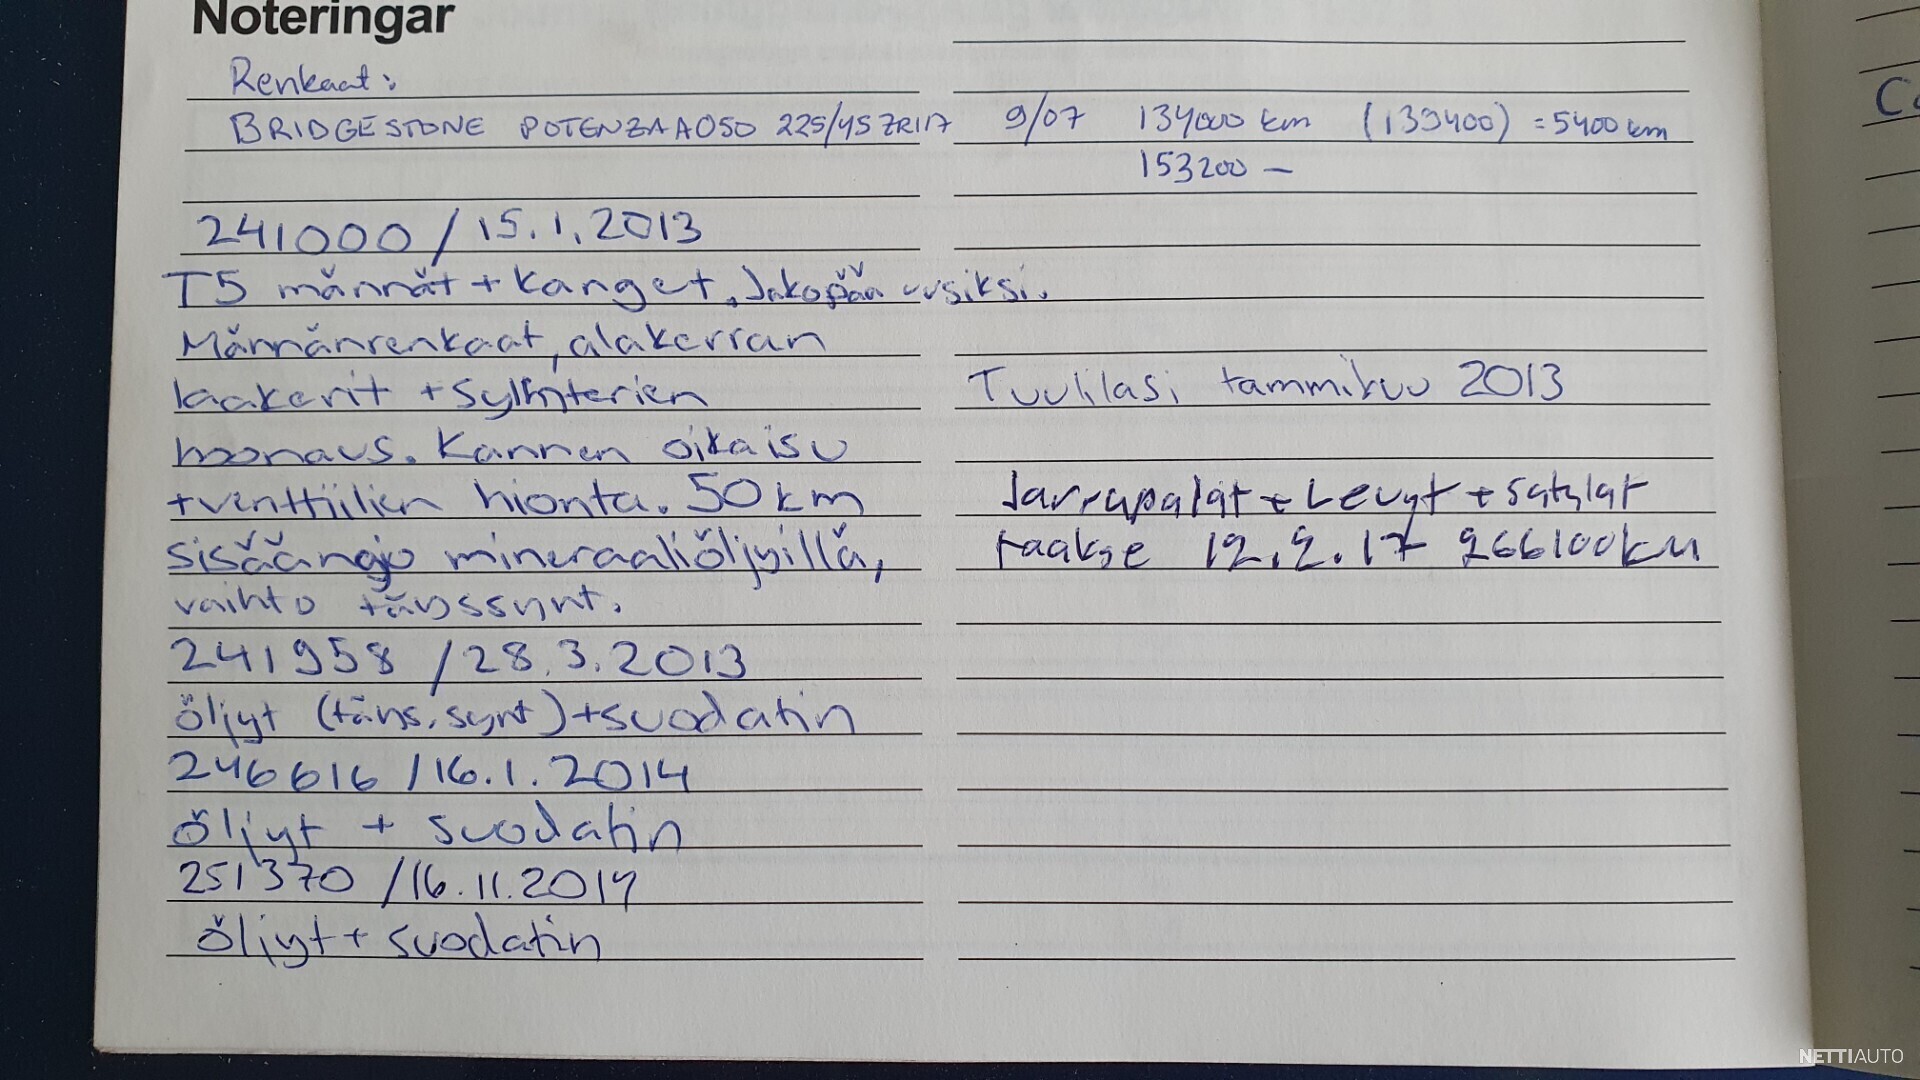 Noteringar
Renkaat:
BRIDGESTONE POTENZA A050 225/45ZR17 9/07 134000 km (139400) = 5400 km
153200 —
241000 / 15.1.2013
T5 männät + kanget. Jakopää uusiksi.
Männänrenkaat, alakerran
laakerit + sylinterien
hoonaus. Kannen oikaisu
+ venttiilien hionta. 50 km
sisäänajo mineraaliöljyillä,
vaihto täyssynt.
241958 / 28.3.2013
Öljyt (täys.synt) + suodatin
246616 / 16.1.2014
Öljyt + suodatin
251370 / 16.11.2014
Öljyt + suodatin
Tuulilasi tammikuu 2013
Jarrupalat + Levyt + satulat
taakse 12.2.17 266100km
NETTIAUTO